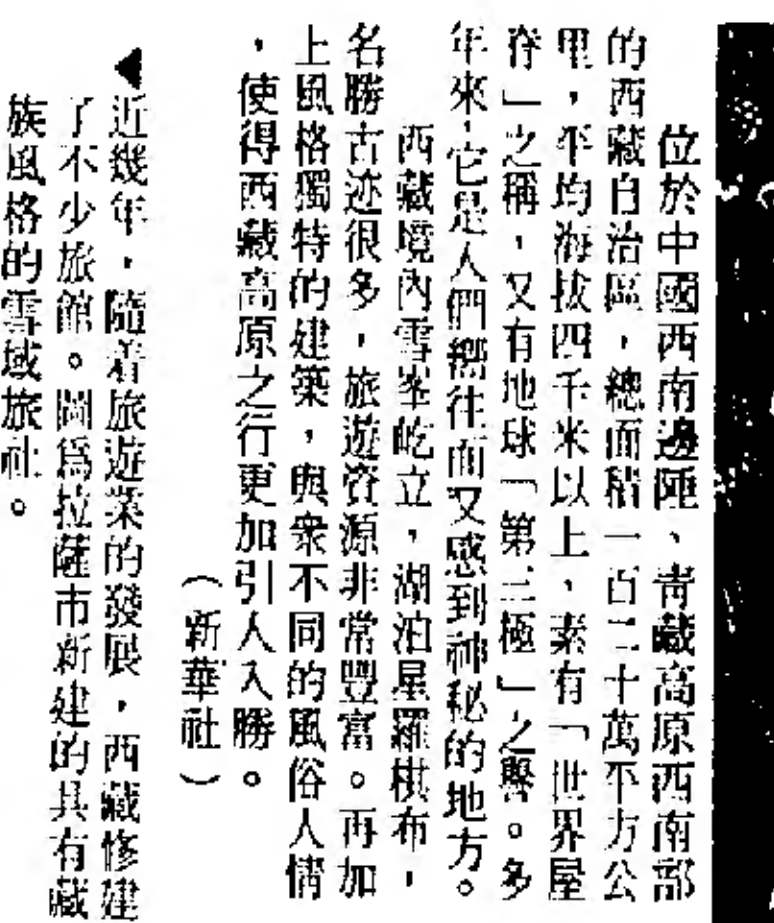 位於中國西南邊陲、青藏高原西南部
的西藏自治區，總面積一百二十萬平方公
里，平均海拔四千米以上，素有「世界屋
脊」之稱，又有地球「第三極」之譽。多
年來，它是人們嚮往而又感到神秘的地方。
西藏境內雪峯屹立，湖泊星羅棋布，
名勝古迹很多，旅遊資源非常豐富。再加
上風格獨特的建築，與衆不同的風俗人情
，使得西藏高原之行更加引人入勝。
（新華社）
◀近幾年，隨着旅遊業的發展，西藏修建
了不少旅館。圖爲拉薩市新建的具有藏
族風格的雪域旅社。